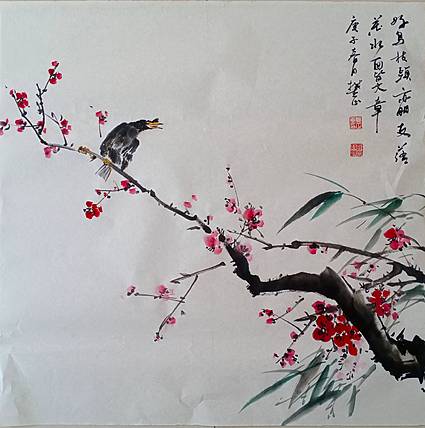 好鸟枝頭亦朋友落
花水面皆文章
庚子春月